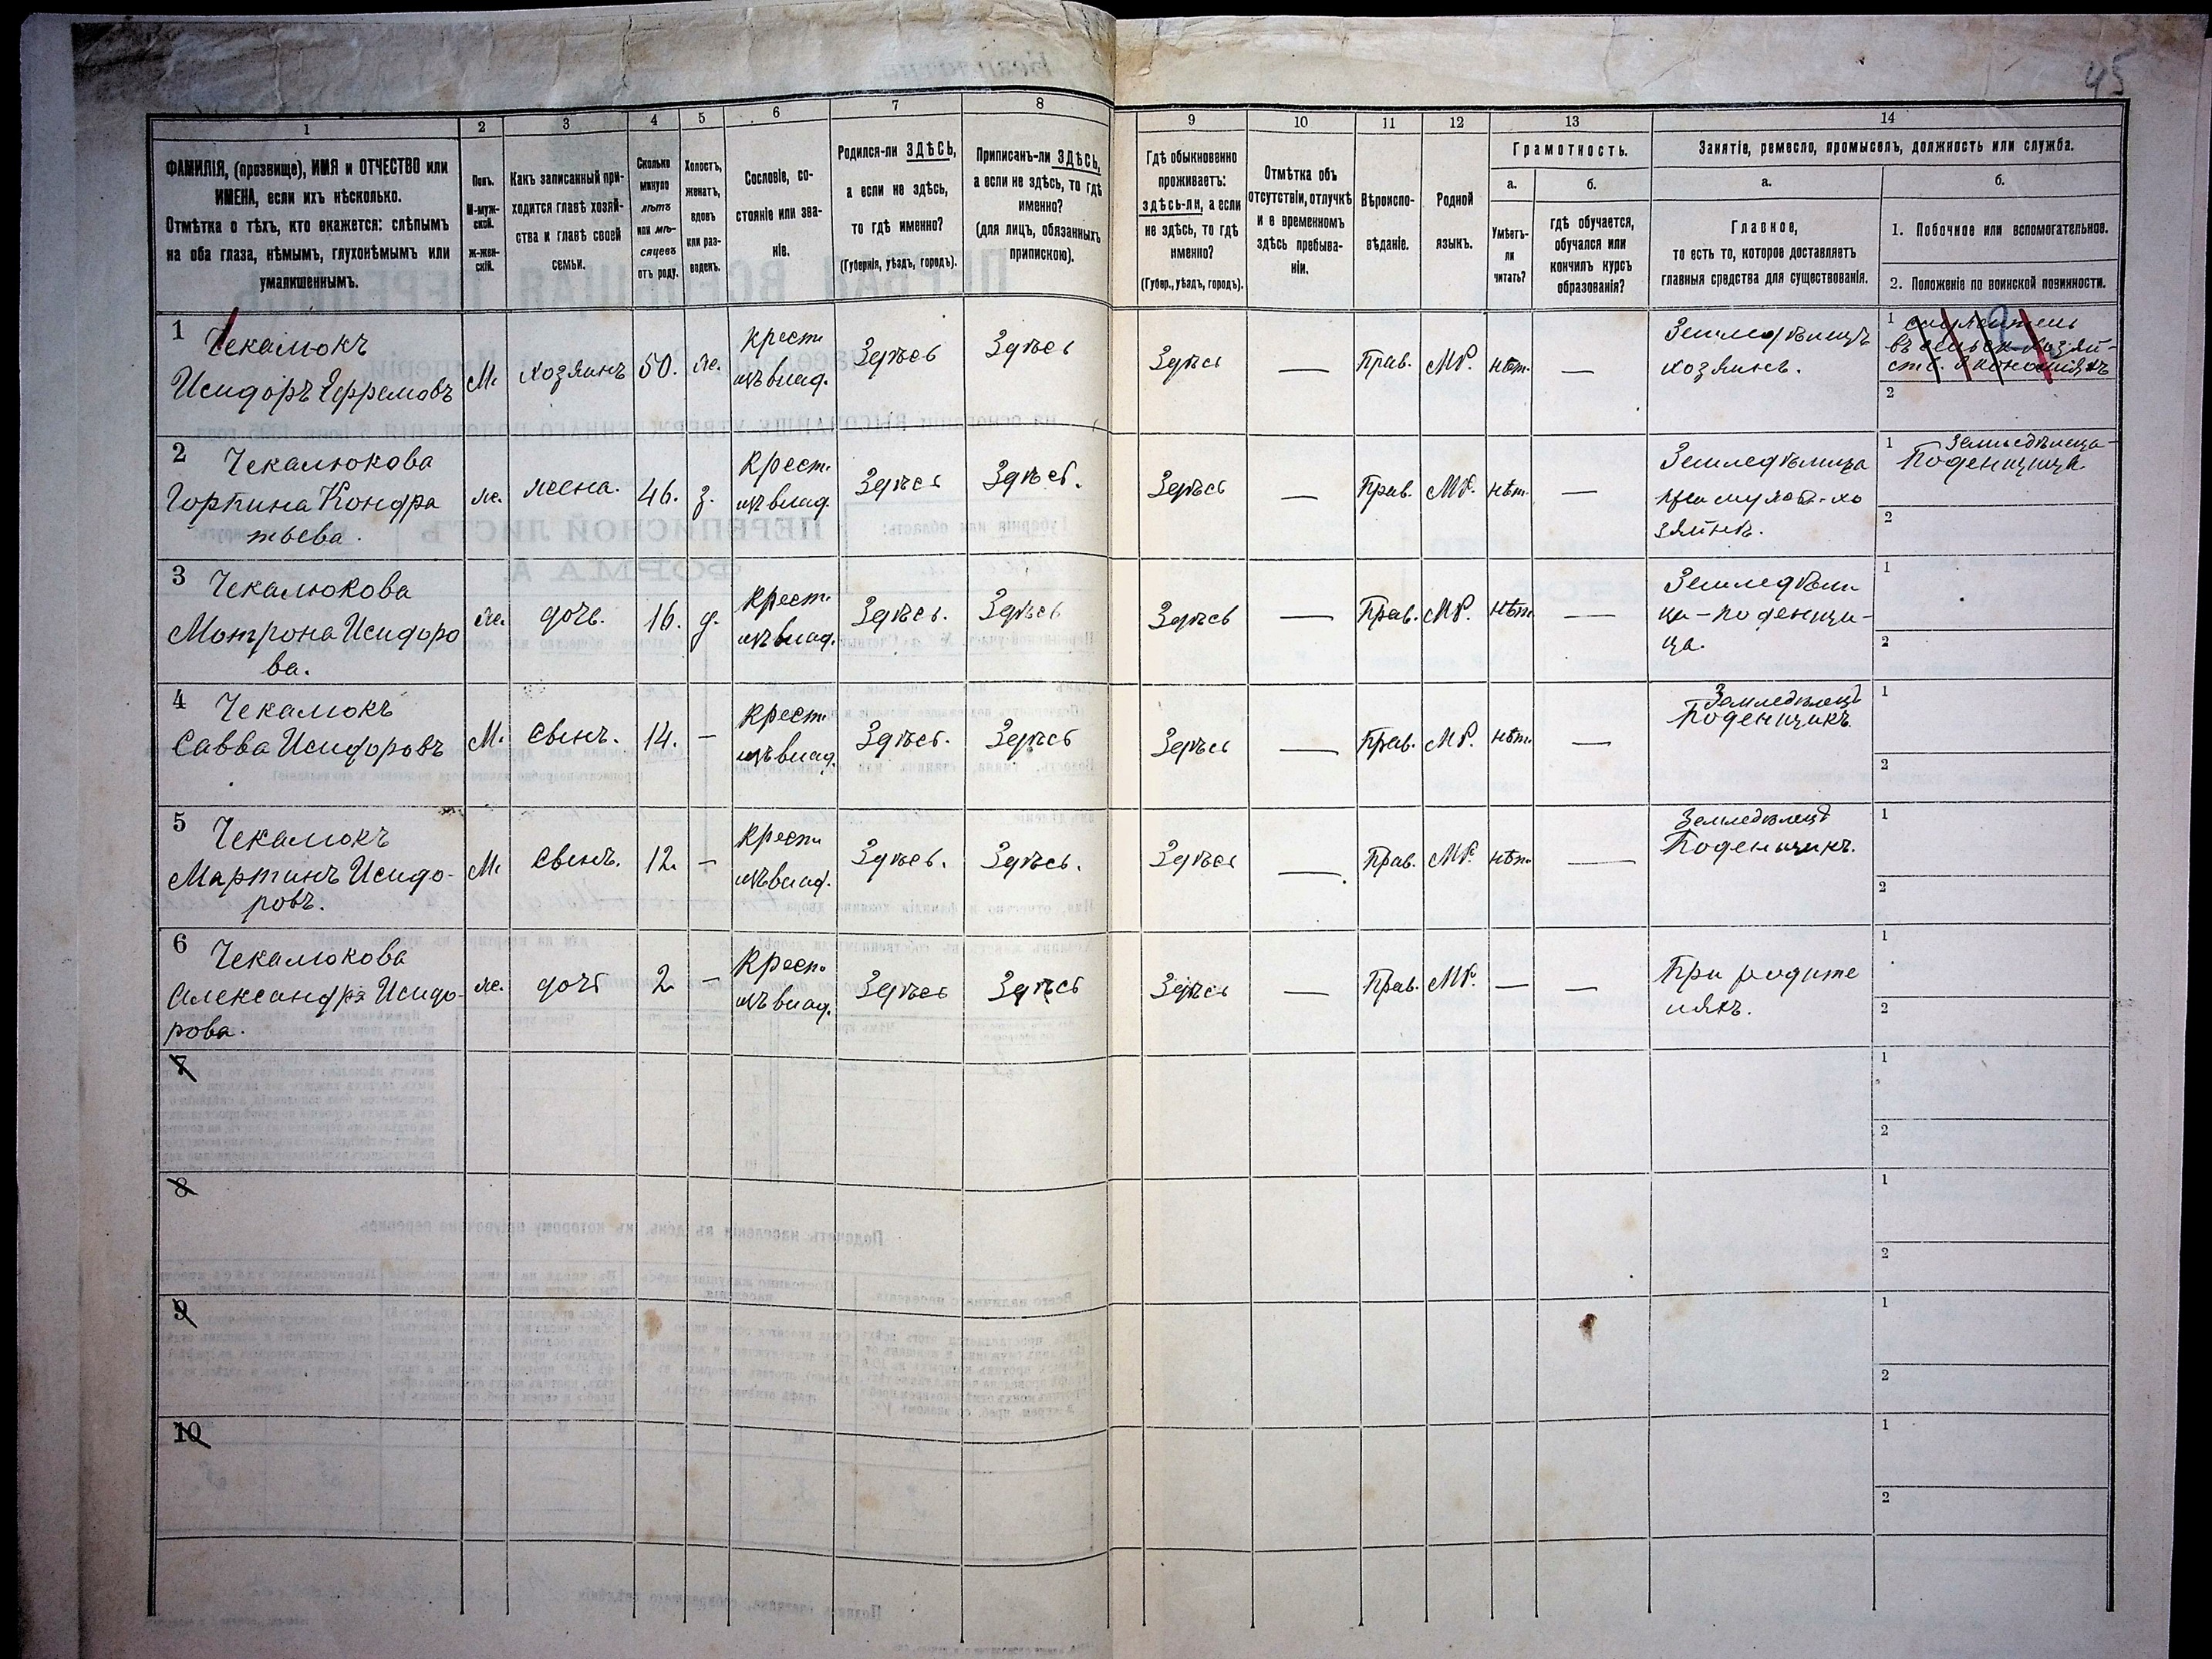 45
1 2 3 4 5 6 7 8 9 10 11 12 13 14
ФАМИЛІЯ, (прозвище), ИМЯ и ОТЧЕСТВО или
ИМЕНА, если ихъ нѣсколько.
Отмѣтка о тѣхъ, кто окажется: слѣпымъ
на оба глаза, нѣмымъ, глухонѣмымъ или
умалишеннымъ.
Полъ.
М-муж-
ской.
ж-жен-
скій.
Какъ записанный при-
ходится главѣ хозяй-
ства и главѣ своей
семьи.
Сколько
минуло
лѣтъ
или мѣ-
сяцевъ
отъ роду.
Холостъ,
женатъ,
вдовъ
или раз-
веденъ.
Сословіе, со-
стояніе или зва-
ніе.
Родился-ли ЗДѢСЬ,
а если не здѣсь,
то гдѣ именно?
(Губернія, уѣздъ, городъ).
Приписанъ-ли ЗДѢСЬ,
а если не здѣсь, то гдѣ
именно?
(для лицъ, обязанныхъ
припискою).
Гдѣ обыкновенно
проживаетъ:
здѣсь-ли, а если
не здѣсь, то гдѣ
именно?
(Губер., уѣздъ, городъ).
Отмѣтка объ
отсутствіи, отлучкѣ
и о временномъ
здѣсь пребыва-
ніи.
Вѣроиспо-
вѣданіе.
Родной
языкъ.
Грамотность.
а.
Умѣетъ-
ли
читать?
б.
гдѣ обучается,
обучался или
кончилъ курсъ
образованія?
Занятіе, ремесло, промыселъ, должность или служба.
а.
Главное,
то есть то, которое доставляетъ
главныя средства для существованія.
б.
1. Побочное или вспомогательное.
2. Положеніе по воинской повинности.
1 Чекалюкъ
Исидоръ Ефремовъ
М. хозяинъ 50. ж.
крест.
изъ влад.
Здѣсь Здѣсь Здѣсь — Прав. МР. нѣт. —
Земледѣлецъ
хозяинъ.
1
2
2 Чекалюкова
Горпина Кондра
тьева.
ж. жена. 46. з.
Крест.
изъ влад.
Здѣсь Здѣсь. Здѣсь — Прав. МР. нѣт. —
Земледѣлица
при мужѣ-хо
зяинѣ.
1 Земледѣлица-
Поденщица.
2
3 Чекалюкова
Мотрона Исидоро
ва.
ж. дочь. 16. д.
крест.
изъ влад.
Здѣсь. Здѣсь Здѣсь — Прав. МР. нѣт. —
Земледѣли
ца-поденщи-
ца.
1
2
4 Чекалюкъ
Савва Исидоровъ
М. Сынъ. 14. —
Крест.
изъ влад.
Здѣсь. Здѣсь Здѣсь — Прав. МР. нѣт. —
Земледѣлецъ
Поденщикъ.
1
2
5 Чекалюкъ
Мартинъ Исидо-
ровъ.
М. Сынъ. 12. —
Крест.
изъ влад.
Здѣсь. Здѣсь. Здѣсь — Прав. МР. нѣт. —
Земледѣлецъ
Поденщикъ.
1
2
6 Чекалюкова
Александра Исидо-
рова.
ж. дочь 2 —
Крест.
изъ влад.
Здѣсь Здѣсь Здѣсь — Прав. МР. — —
При родите
ляхъ.
1
2
7
1
2
8
1
2
9
1
2
10
1
2